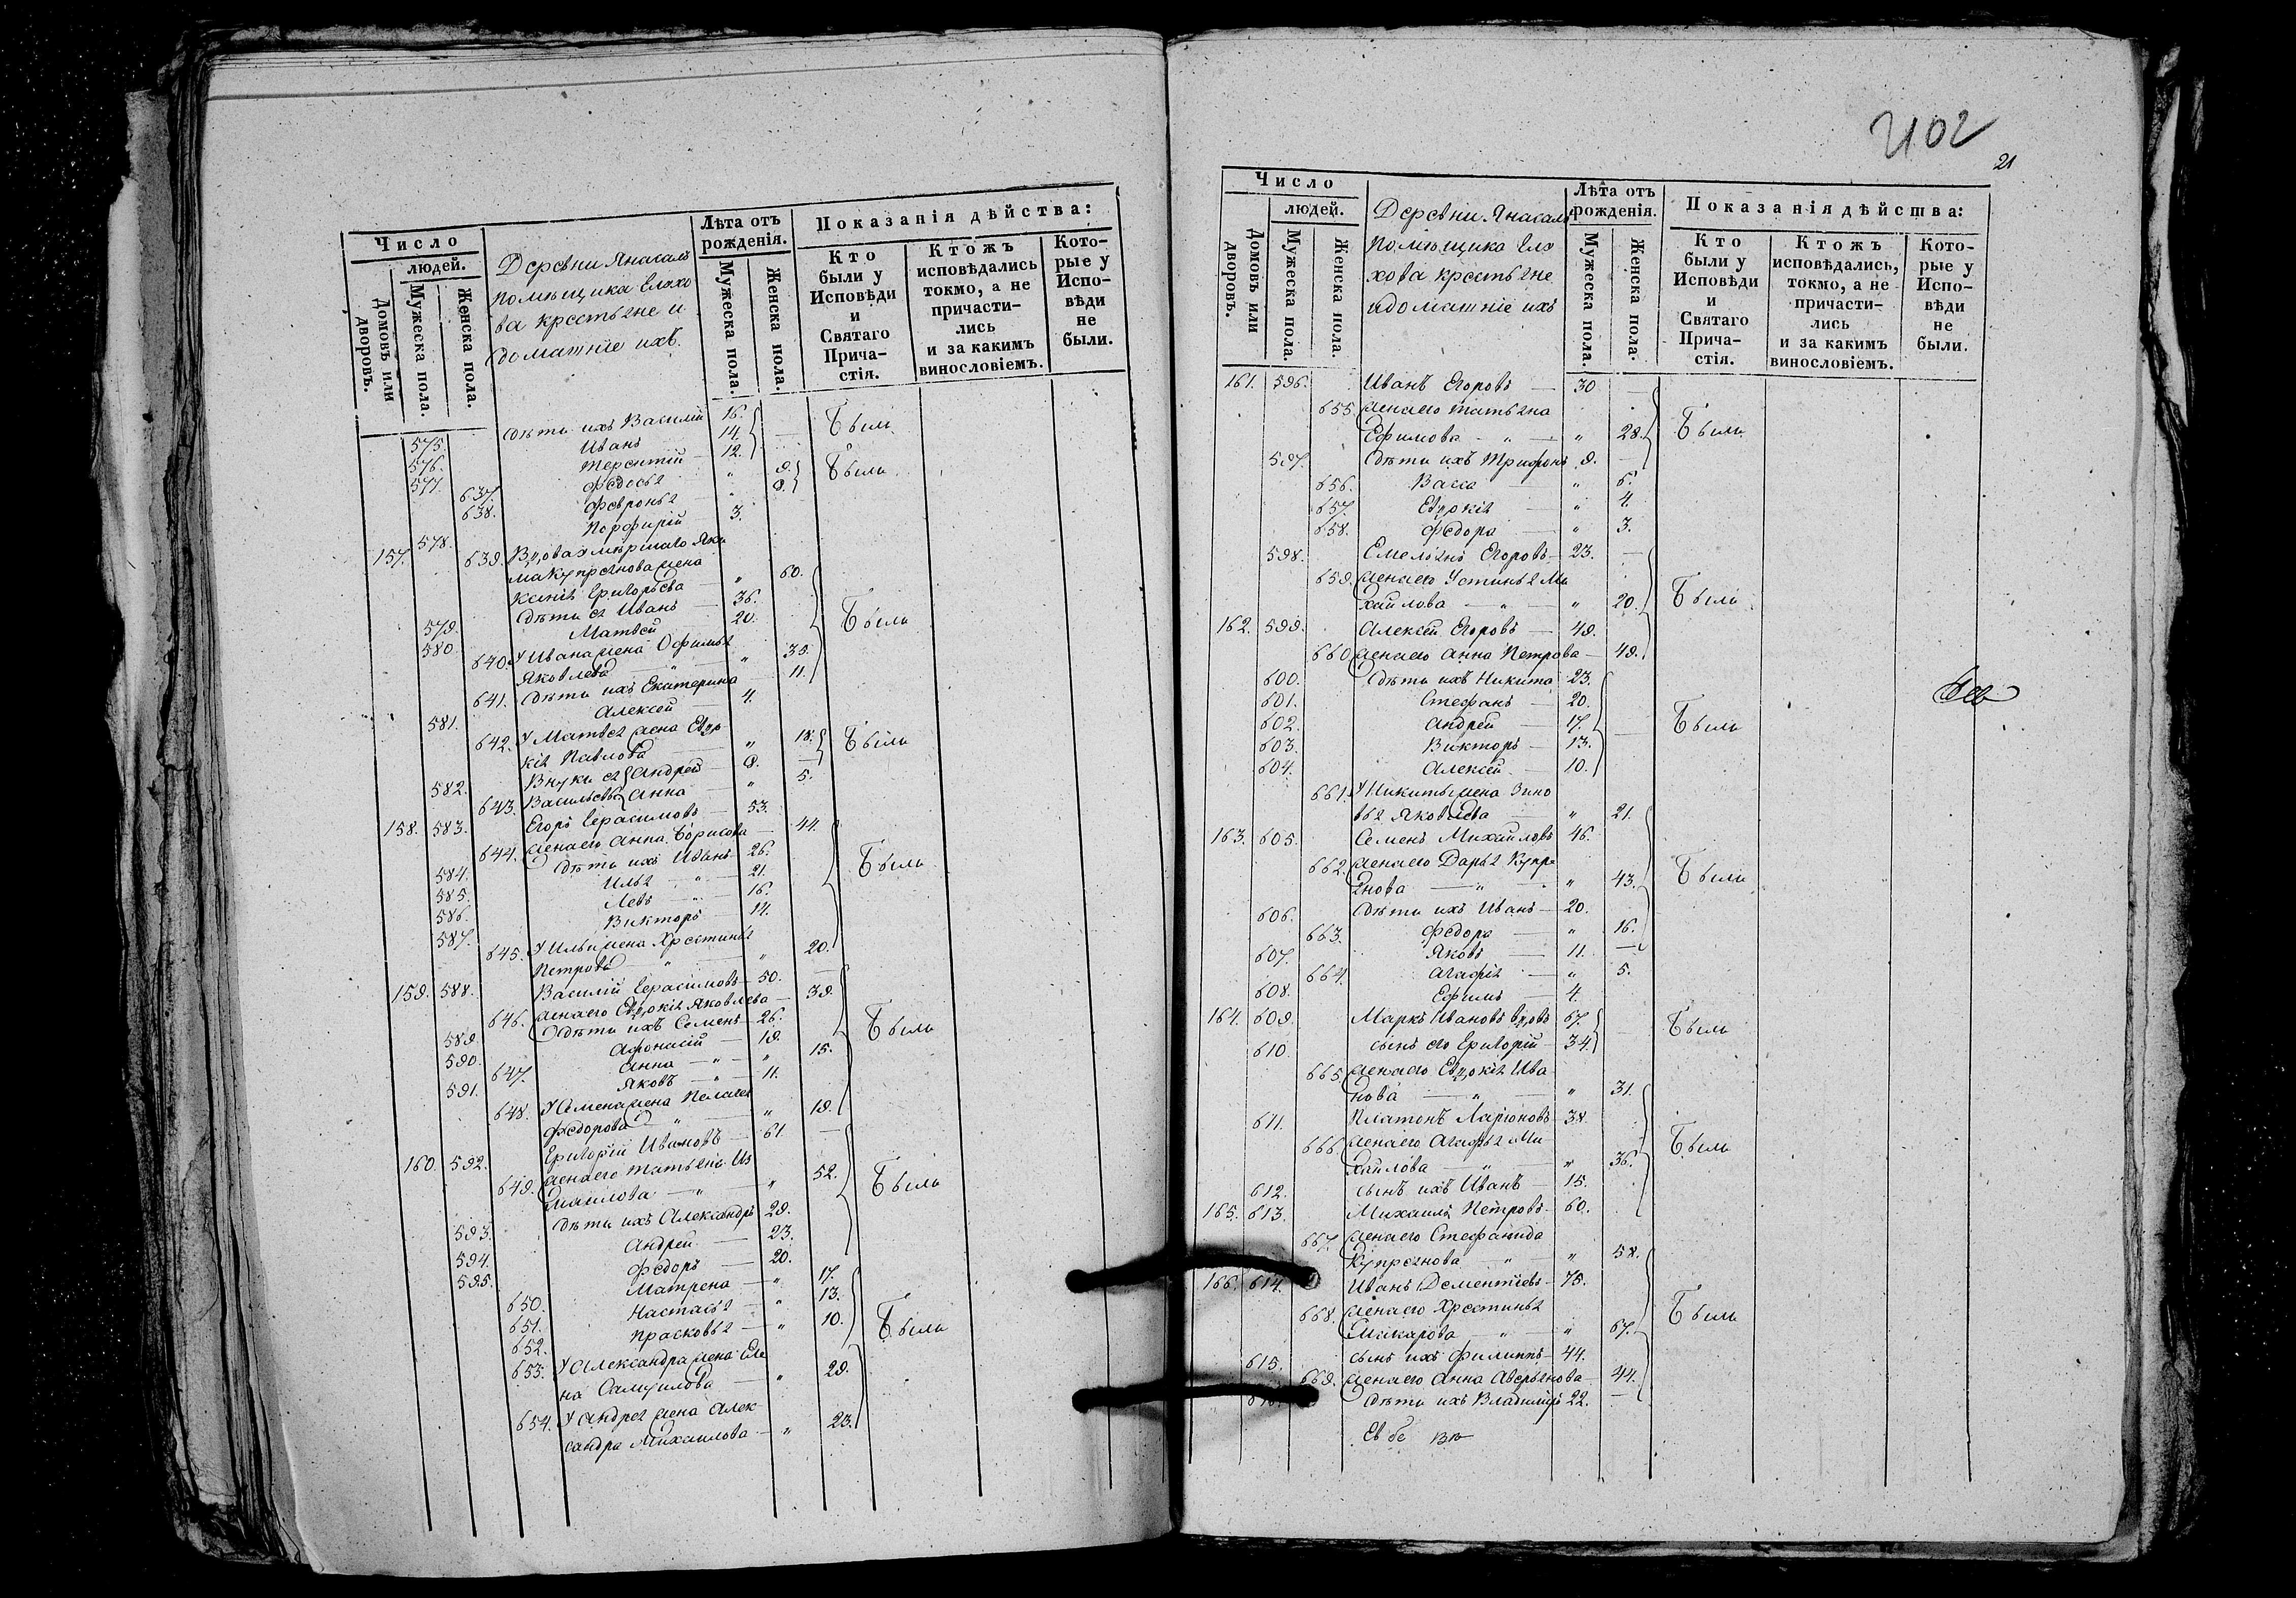 Число
людей.
Домовъ или дворовъ.
Мужеска пола.
Женска пола.
Деревни Янасалъ
помѣщика Елахо
ва крестьяне и
домашніе ихъ.
Лѣта отъ рожденія.
Мужеска пола.
Женска пола.
Показанія дѣйства:
Кто были у Исповѣди и Святаго Прича-стія.
Ктожъ исповѣдались токмо, а не причасти-лись и за какимъ винословіемъ.
Кото-рые у Испо-вѣди не были.
575. дѣти ихъ Василій 16. Были
576. Иванъ 14.
577. Терентій 12.
637. Федосья " 9. Были
638. Февронья " 9.
578. Порфирій 3.
157. 639. Вдова умершаго Яки
ма Купреянова жена
Ксенія Григорьева " 60.
579. дѣти ея Иванъ 36. Были
580. Матвей 20.
640. У Ивана жена Офимья
Яковлева " 39.
641. дѣти ихъ Екатерина 11.
581. Алексей 4.
642. У Матвея жена Евдо
кія Павлова " 18. Были
582. Внуки ея Андрей 9.
643. Васильевы Анна " 5.
158. 583. Егоръ Герасимовъ 53.
644. жена его Анна Борисова 44.
584. дѣти ихъ Иванъ 26. Были
585. Илья 21.
586. Левъ 16.
587. Викторъ 14.
645. У Ильи жена Хрестинья
Петрова " 20.
159. 588. Василій Герасимовъ 50.
646. жена его Евдокія Яковлева 39.
589. дѣти ихъ Семенъ 26. Были
590. Афонасій 19.
647. Анна " 15.
591. Яковъ 11.
648. У Семена жена Пелагея
Федорова " 19.
160. 592. Григорій Ивановъ 61.
649. жена его Татьяна Из
маилова " 52. Были
593. дѣти ихъ Александръ 29.
594. Андрей 23.
595. Федоръ 20.
650. Матрена " 17.
651. Настасья " 13.
652. Прасковья " 10. Были
653. У Александра жена Еле
на Самуилова " 29.
654. У Андрея жена Алек
сандра Михаилова " 23.
402
21
Число
людей.
Домовъ или дворовъ.
Мужеска пола.
Женска пола.
Деревни Янасалъ
помѣщика Ела
хова крестьяне
и домашніе ихъ
Лѣта отъ рожденія.
Мужеска пола.
Женска пола.
Показанія дѣйства:
Кто были у Исповѣди и Святаго Прича-стія.
Ктожъ исповѣдались, токмо, а не причасти-лись и за какимъ винословіемъ.
Кото-рые у Испо-вѣди не были.
161. 596. Иванъ Егоровъ 30
655. жена его Татьяна
Ефимова " 28. Были
597. дѣти ихъ Трифонъ 9.
656. Васса " 6.
657. Евдокія " 4.
658. Федора " 3.
598. Емельянъ Егоровъ 23.
659. жена его Устинья Ми
хайлова " 20. Были
162. 599. Алексей Егоровъ 49.
660 жена его Анна Петрова 49.
600. дѣти ихъ Никита 23.
601. Стефанъ 20.
602. Андрей 17. Были
603. Викторъ 13.
604. Алексей 10.
661. У Никиты жена Зино
вья Яковлева " 21.
163. 605. Семенъ Михайловъ 46.
662. жена его Дарья Купре
янова " 43. Были
606. дѣти ихъ Иванъ 20.
663. Федора " 16.
607. Яковъ 11.
664. Агафія " 5.
608. Ефимъ 4.
164. 609. Маркъ Ивановъ вдовъ 67. Были
610. сынъ его Григорій 34.
665 жена его Евдокія Ива
нова " 31.
611. Платонъ Ларіоновъ 38
666 жена его Агафья Ми
хайлова " 36. Были
612. сынъ ихъ Иванъ 15.
165. 613. Михаилъ Петровъ 60.
667. жена его Стефанида
Купреянова " 58.
166. 614. Иванъ Дементіевъ 75.
668. жена его Хрестинья
Макарова " 67. Были
615. сынъ ихъ Филиппъ 44.
669. жена его Анна Аверьянова 44.
дѣти ихъ Владимиръ 22.